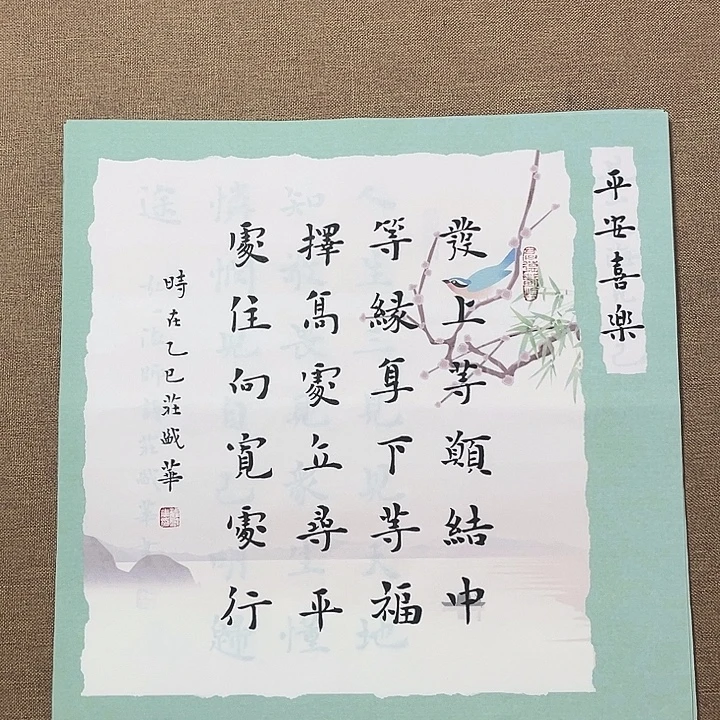 平安喜樂
發上等願結中
等緣享下等福
擇高處立尋平
處住向寬處行
時在乙巳莊㦰華